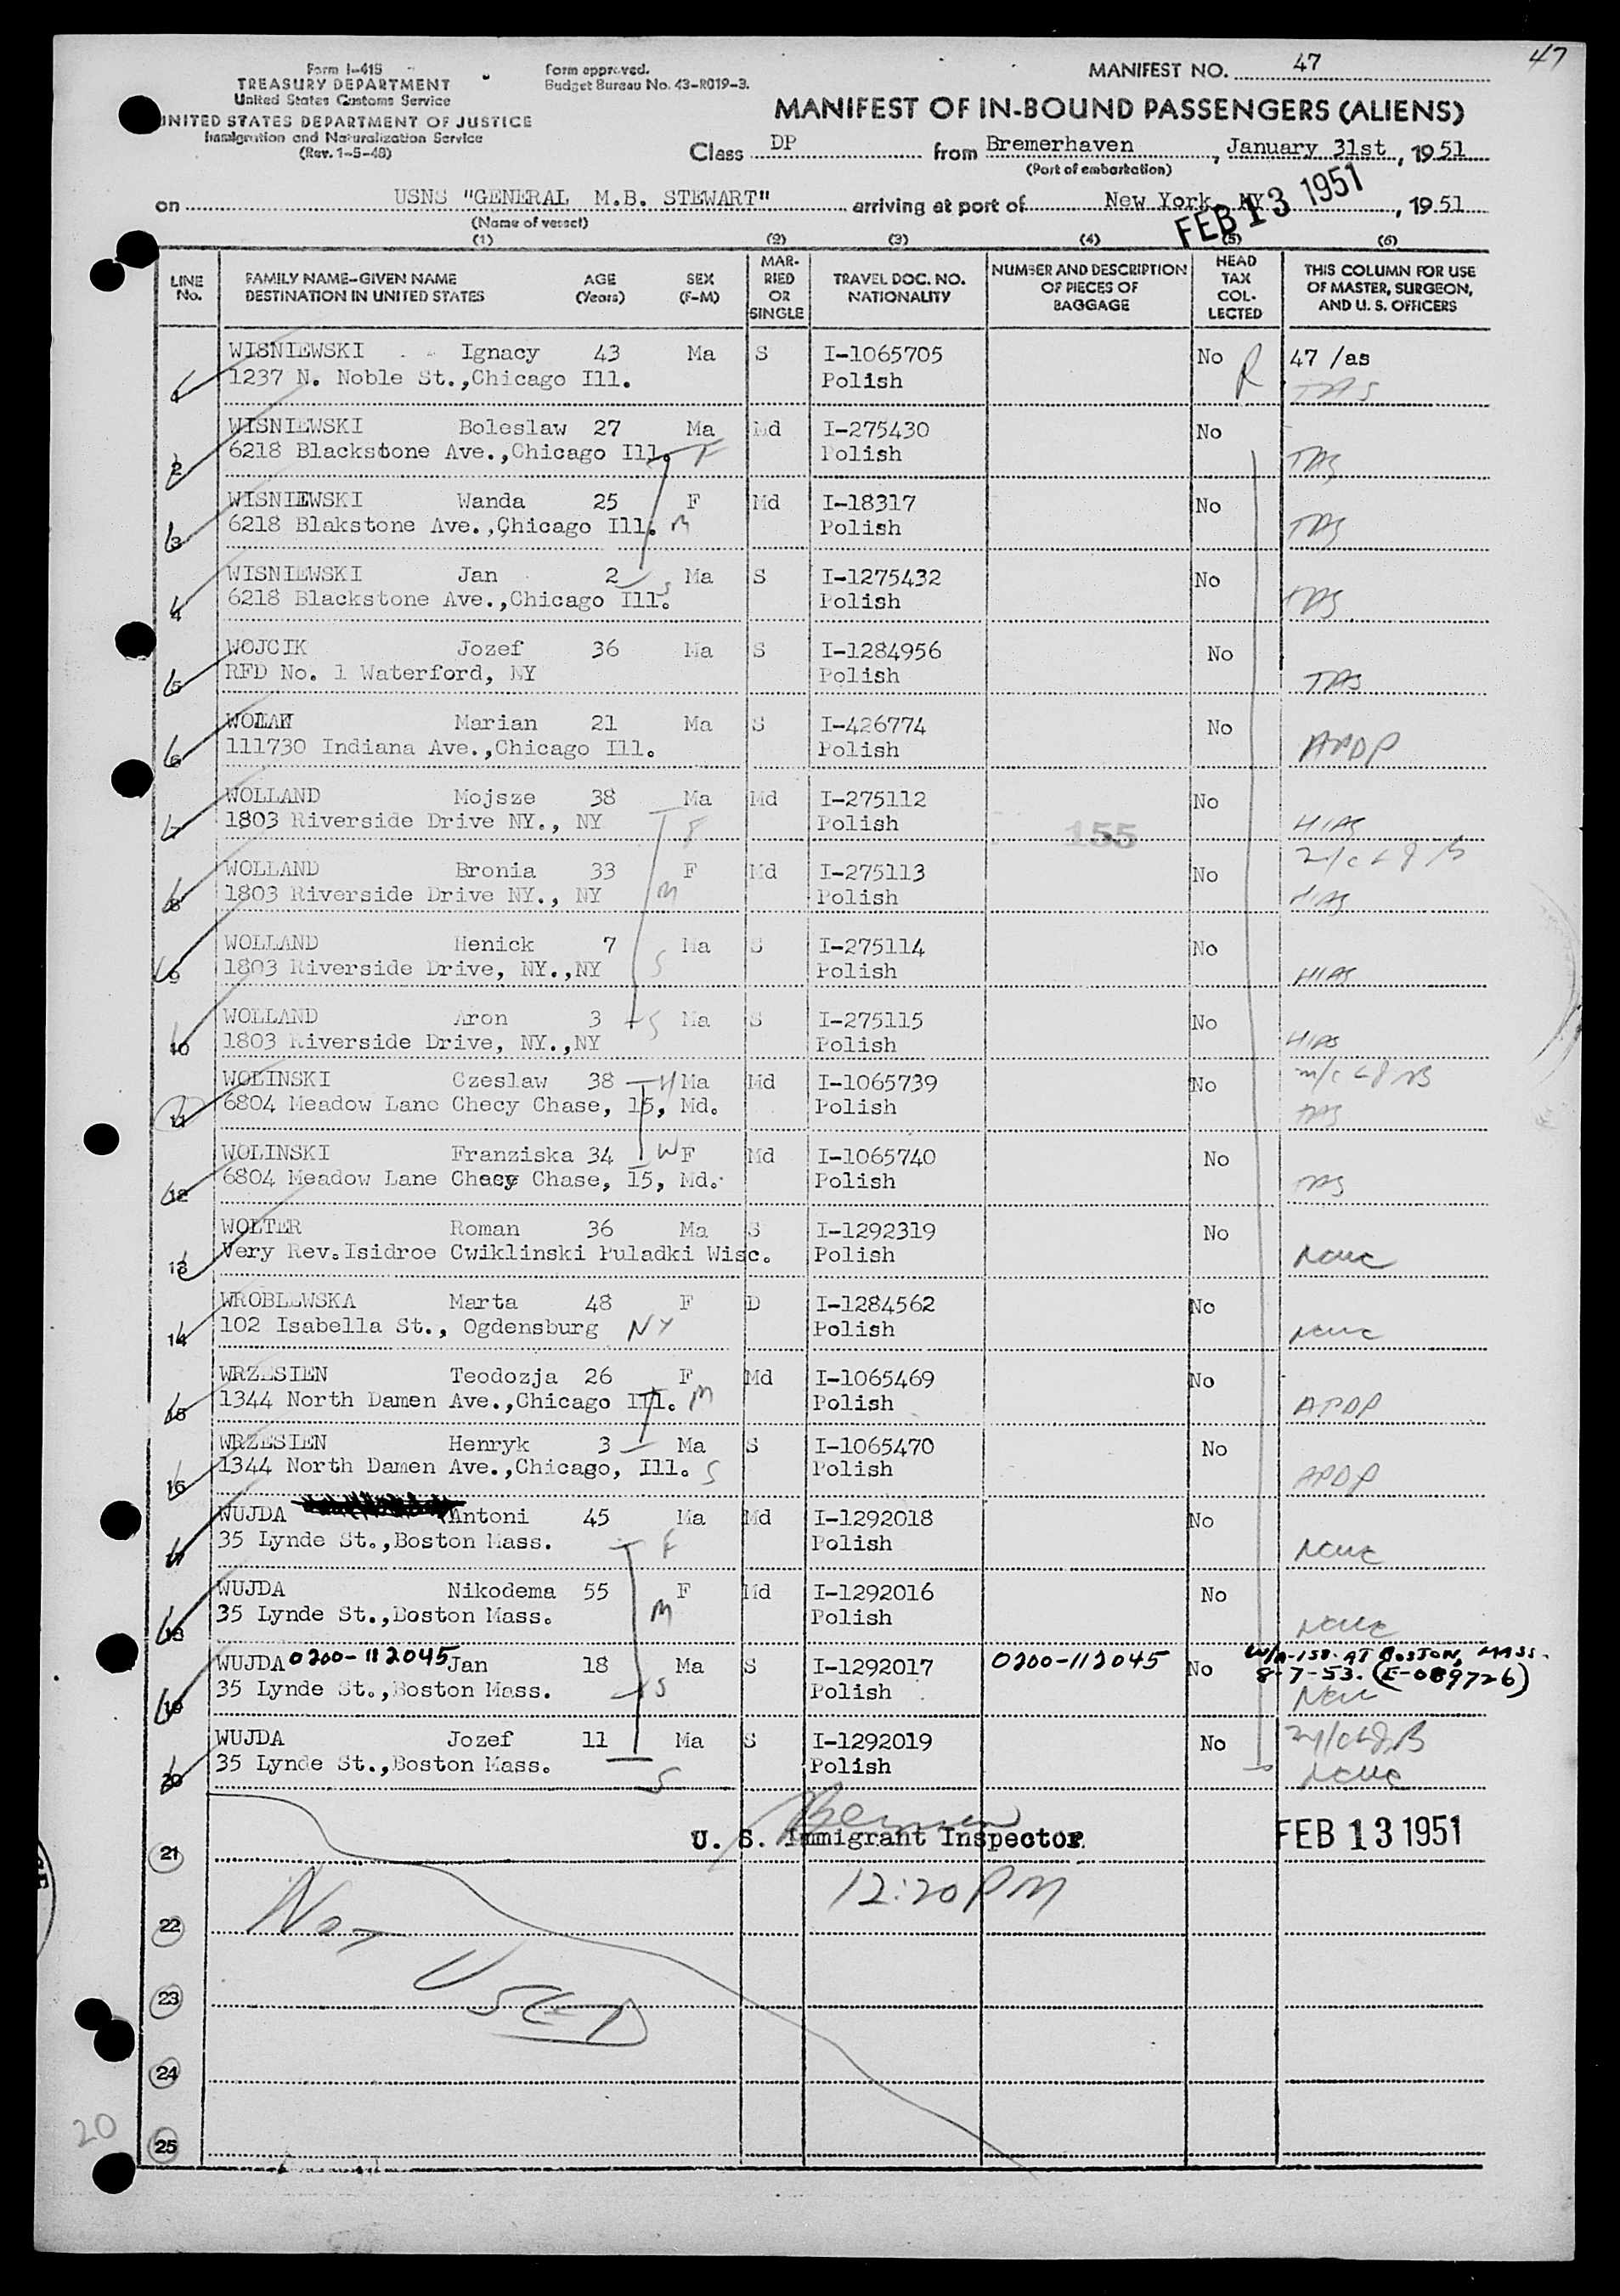 47
Form I-415
TREASURY DEPARTMENT
United States Customs Service
UNITED STATES DEPARTMENT OF JUSTICE
Immigration and Naturalization Service
(Rev. 1-5-48)
Form approved.
Budget Bureau No. 43-R019-3.
MANIFEST NO. 47
MANIFEST OF IN-BOUND PASSENGERS (ALIENS)
Class DP from Bremerhaven, January 31st, 1951
(Port of embarkation)
on USNS "GENERAL M.B. STEWART" arriving at port of New York, NY, 1951
FEB 13 1951
(Name of vessel)
(1) (2) (3) (4) (5) (6)
LINE No. FAMILY NAME-GIVEN NAME DESTINATION IN UNITED STATES AGE (Years) SEX (F-M) MARRIED OR SINGLE TRAVEL DOC. NO. NATIONALITY NUMBER AND DESCRIPTION OF PIECES OF BAGGAGE HEAD TAX COL-LECTED THIS COLUMN FOR USE OF MASTER, SURGEON, AND U. S. OFFICERS
WISNIEWSKI Ignacy 43 Ma S I-1065705 No R 47 /as
1 1237 N. Noble St.,Chicago Ill. Polish TAS
WISNIEWSKI Boleslaw 27 Ma Md I-275430 No
2 6218 Blackstone Ave.,Chicago Ill. F Polish TAS
WISNIEWSKI Wanda 25 F Md I-18317 No
3 6218 Blakstone Ave.,Chicago Ill. M Polish TAS
WISNIEWSKI Jan 2 S Ma S I-1275432 No
4 6218 Blackstone Ave.,Chicago Ill. Polish TAS
WOJCIK Jozef 36 Ma S I-1284956 No
5 RFD No. 1 Waterford, NY Polish TAS
WOLAN Marian 21 Ma S I-426774 No
6 111730 Indiana Ave.,Chicago Ill. Polish APDP
WOLLAND Mojsze 38 Ma Md I-275112 No
7 1803 Riverside Drive NY., NY F Polish 155 HIAS
WOLLAND Bronia 33 F Md I-275113 No
8 1803 Riverside Drive NY., NY M Polish HIAS
WOLLAND Henick 7 Ma S I-275114 No
9 1803 Riverside Drive, NY.,NY S Polish HIAS
WOLLAND Aron 3 S Ma S I-275115 No
10 1803 Riverside Drive, NY.,NY Polish HIAS
WOLINSKI Czeslaw 38 H Ma Md I-1065739 No
11 6804 Meadow Lane Checy Chase, 15, Md. Polish TAS
WOLINSKI Franziska 34 W F Md I-1065740 No
12 6804 Meadow Lane Checy Chase, 15, Md. Polish TAS
WOLTER Roman 36 Ma S I-1292319 No
13 Very Rev.Isidroe Cwiklinski Puladki Wisc. Polish NCWC
WROBLEWSKA Marta 48 F D I-1284562 No
14 102 Isabella St., Ogdensburg NY Polish NCWC
WRZESIEN Teodozja 26 F Md I-1065469 No
15 1344 North Damen Ave.,Chicago Ill. M Polish APDP
WRZESIEN Henryk 3 Ma S I-1065470 No
16 1344 North Damen Ave.,Chicago, Ill. S Polish APDP
WUJDA Antoni 45 Ma Md I-1292018 No
17 35 Lynde St.,Boston Mass. F Polish NCWC
WUJDA Nikodema 55 F Md I-1292016 No
18 35 Lynde St.,Boston Mass. M Polish NCWC
WUJDA 0200-112045 Jan 18 Ma S I-1292017 0200-112045 No W/A-158. AT BOSTON, MASS.
8-7-53. (E-089726)
19 35 Lynde St.,Boston Mass. S Polish NCWC
WUJDA Jozef 11 Ma S I-1292019 No
20 35 Lynde St.,Boston Mass. S Polish NCWC
U. S. Immigrant Inspector FEB 13 1951
21
12:20 PM
22 NOT
23 USED
24
20
25